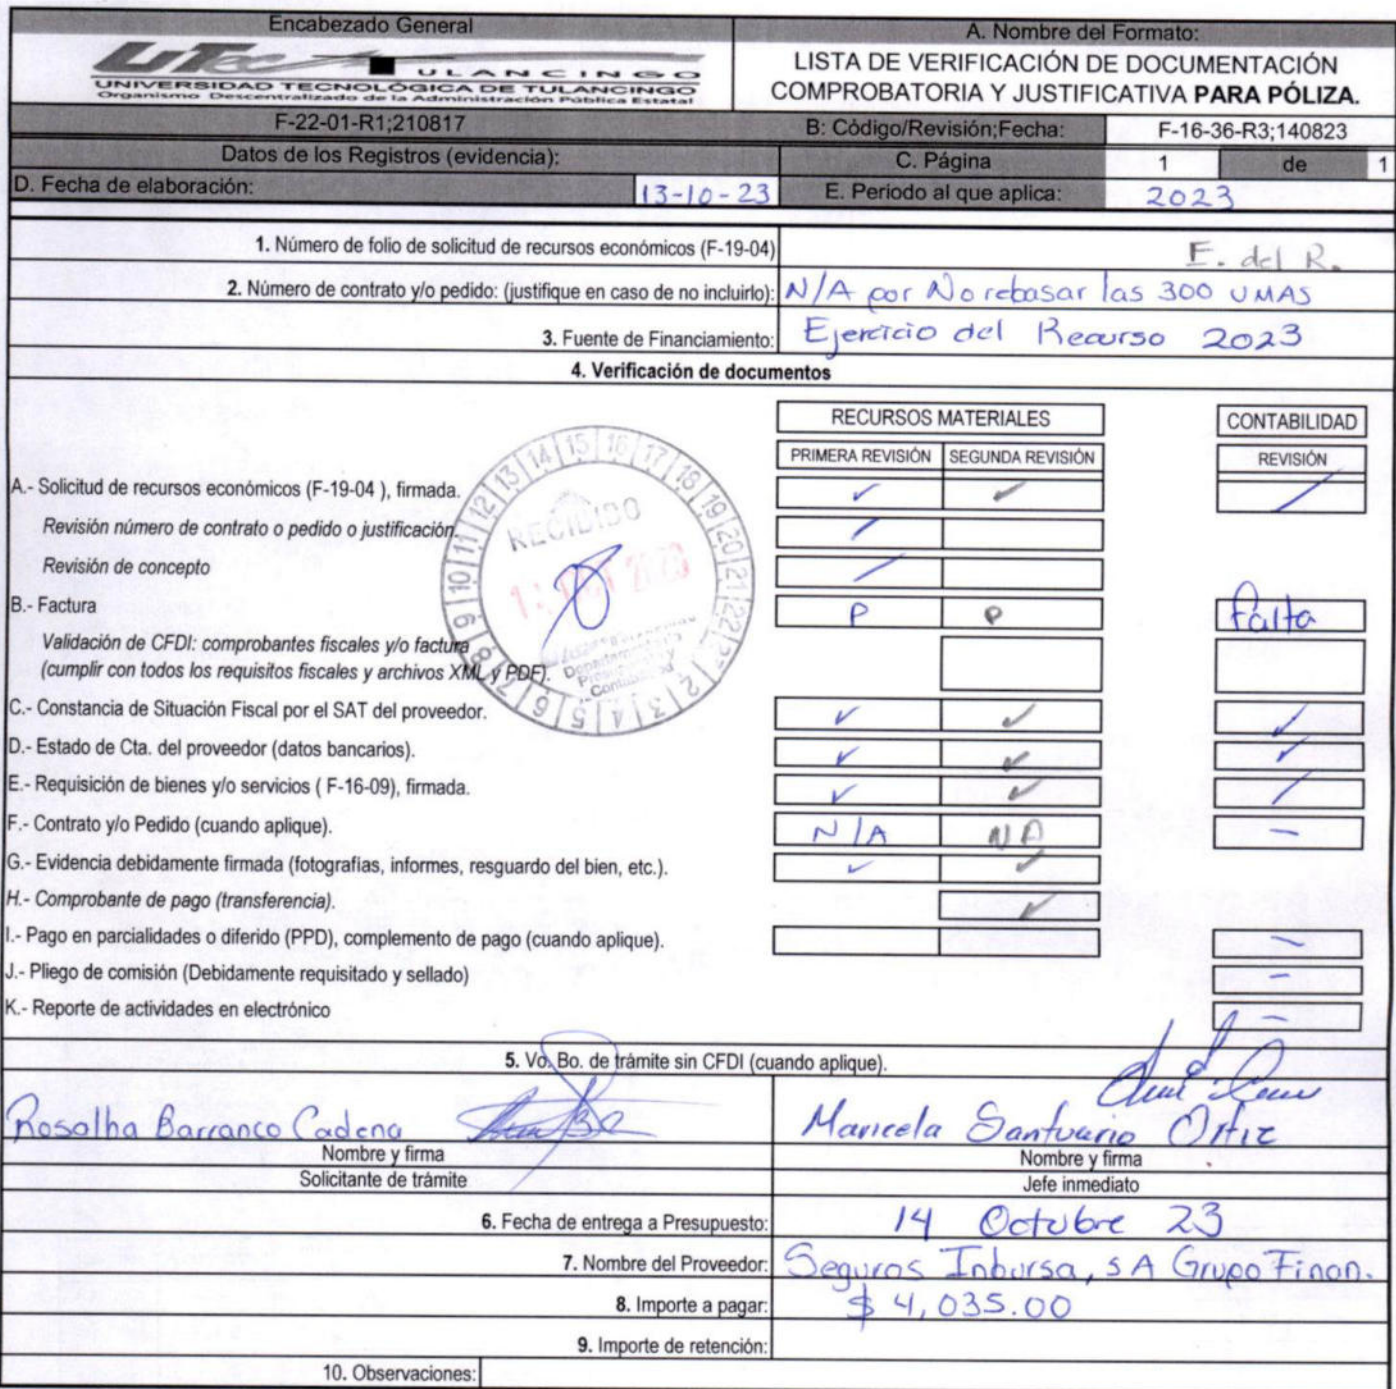 Encabezado General
A. Nombre del Formato:
UTec TULANCINGO
UNIVERSIDAD TECNOLÓGICA DE TULANCINGO
Organismo Descentralizado de la Administración Pública Estatal
LISTA DE VERIFICACIÓN DE DOCUMENTACIÓN
COMPROBATORIA Y JUSTIFICATIVA PARA PÓLIZA.
F-22-01-R1;210817
B: Código/Revisión;Fecha:
F-16-36-R3;140823
Datos de los Registros (evidencia):
C. Página 1 de 1
D. Fecha de elaboración: 13-10-23
E. Periodo al que aplica: 2023
1. Número de folio de solicitud de recursos económicos (F-19-04) E. del R.
2. Número de contrato y/o pedido: (justifique en caso de no incluirlo): N/A por No rebasar las 300 UMAS
3. Fuente de Financiamiento: Ejercicio del Recurso 2023
4. Verificación de documentos
RECURSOS MATERIALES
CONTABILIDAD
PRIMERA REVISIÓN SEGUNDA REVISIÓN REVISIÓN
A.- Solicitud de recursos económicos (F-19-04 ), firmada. ✓ ✓ /
Revisión número de contrato o pedido o justificación. /
Revisión de concepto /
B.- Factura P P Falta
Validación de CFDI: comprobantes fiscales y/o factura
(cumplir con todos los requisitos fiscales y archivos XML y PDF).
C.- Constancia de Situación Fiscal por el SAT del proveedor. ✓ ✓ ✓
D.- Estado de Cta. del proveedor (datos bancarios). ✓ ✓ ✓
E.- Requisición de bienes y/o servicios ( F-16-09), firmada. ✓ ✓ /
F.- Contrato y/o Pedido (cuando aplique). N/A NA –
G.- Evidencia debidamente firmada (fotografías, informes, resguardo del bien, etc.). ✓ ✓
H.- Comprobante de pago (transferencia). ✓
I.- Pago en parcialidades o diferido (PPD), complemento de pago (cuando aplique). –
J.- Pliego de comisión (Debidamente requisitado y sellado) –
K.- Reporte de actividades en electrónico –
RECIBIDO
OCT 2023
Departamento
Presupuesto y
Contabilidad
1 2 3 4 5 6 7 8 9 10 11 12 13 14 15 16 17 18 19 20 21 22 23
5. Vo. Bo. de trámite sin CFDI (cuando aplique).
Rosalha Barranco Cadena
Maricela Santuario Ortiz
Nombre y firma
Nombre y firma
Solicitante de trámite
Jefe inmediato
6. Fecha de entrega a Presupuesto: 14 Octubre 23
7. Nombre del Proveedor: Seguros Inbursa, SA Grupo Finan.
8. Importe a pagar: $ 4,035.00
9. Importe de retención:
10. Observaciones: